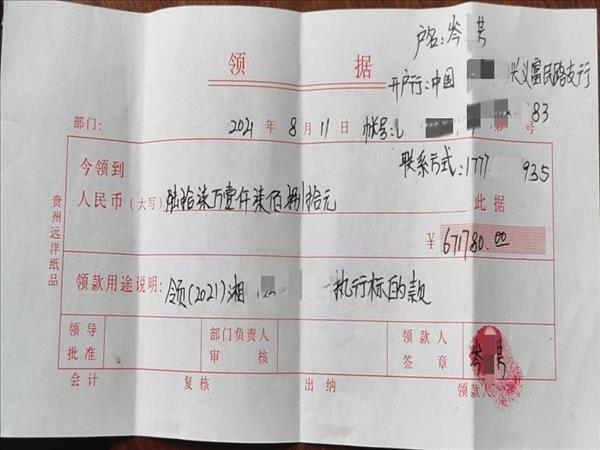 户名:岑 芸
领 据
开户行:中国 兴义富民路支行
部门: 2021 年 8 月 11 日 帐号: 第 83 号
联系方式:1777 935
今领到
人民币(大写)陆拾柒万壹仟柒佰捌拾元 此据
¥ 671780.00
领款用途说明:领(2021)湘 执行标的款
领导批准 部门负责人审核 领款人签章 岑 芸
会计 复核 出纳 领款人
贵州远洋纸品